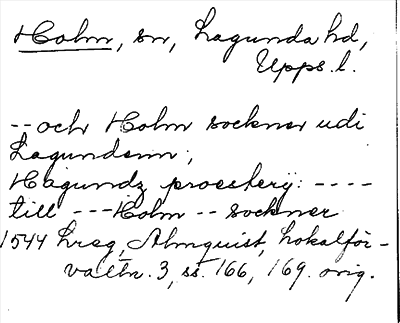 Holm, sn, Lagunda hd,
Upps. l.
-- och Holm sockner udi
Lagundenn;
Hagundz proesterij: ----
till --- Holm -- sockner
1544 hreg, Almquist, Lokalför-
valtn. 3, ss. 166, 169. orig.